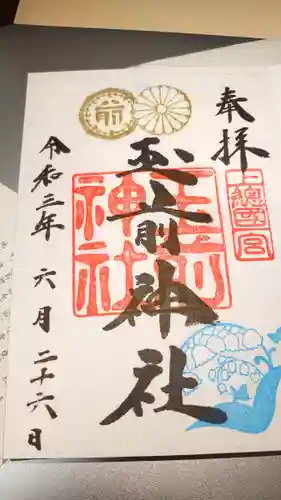 奉拝
上總國一宮
玉前神社
玉前神社
令和三年 六月 二十六日